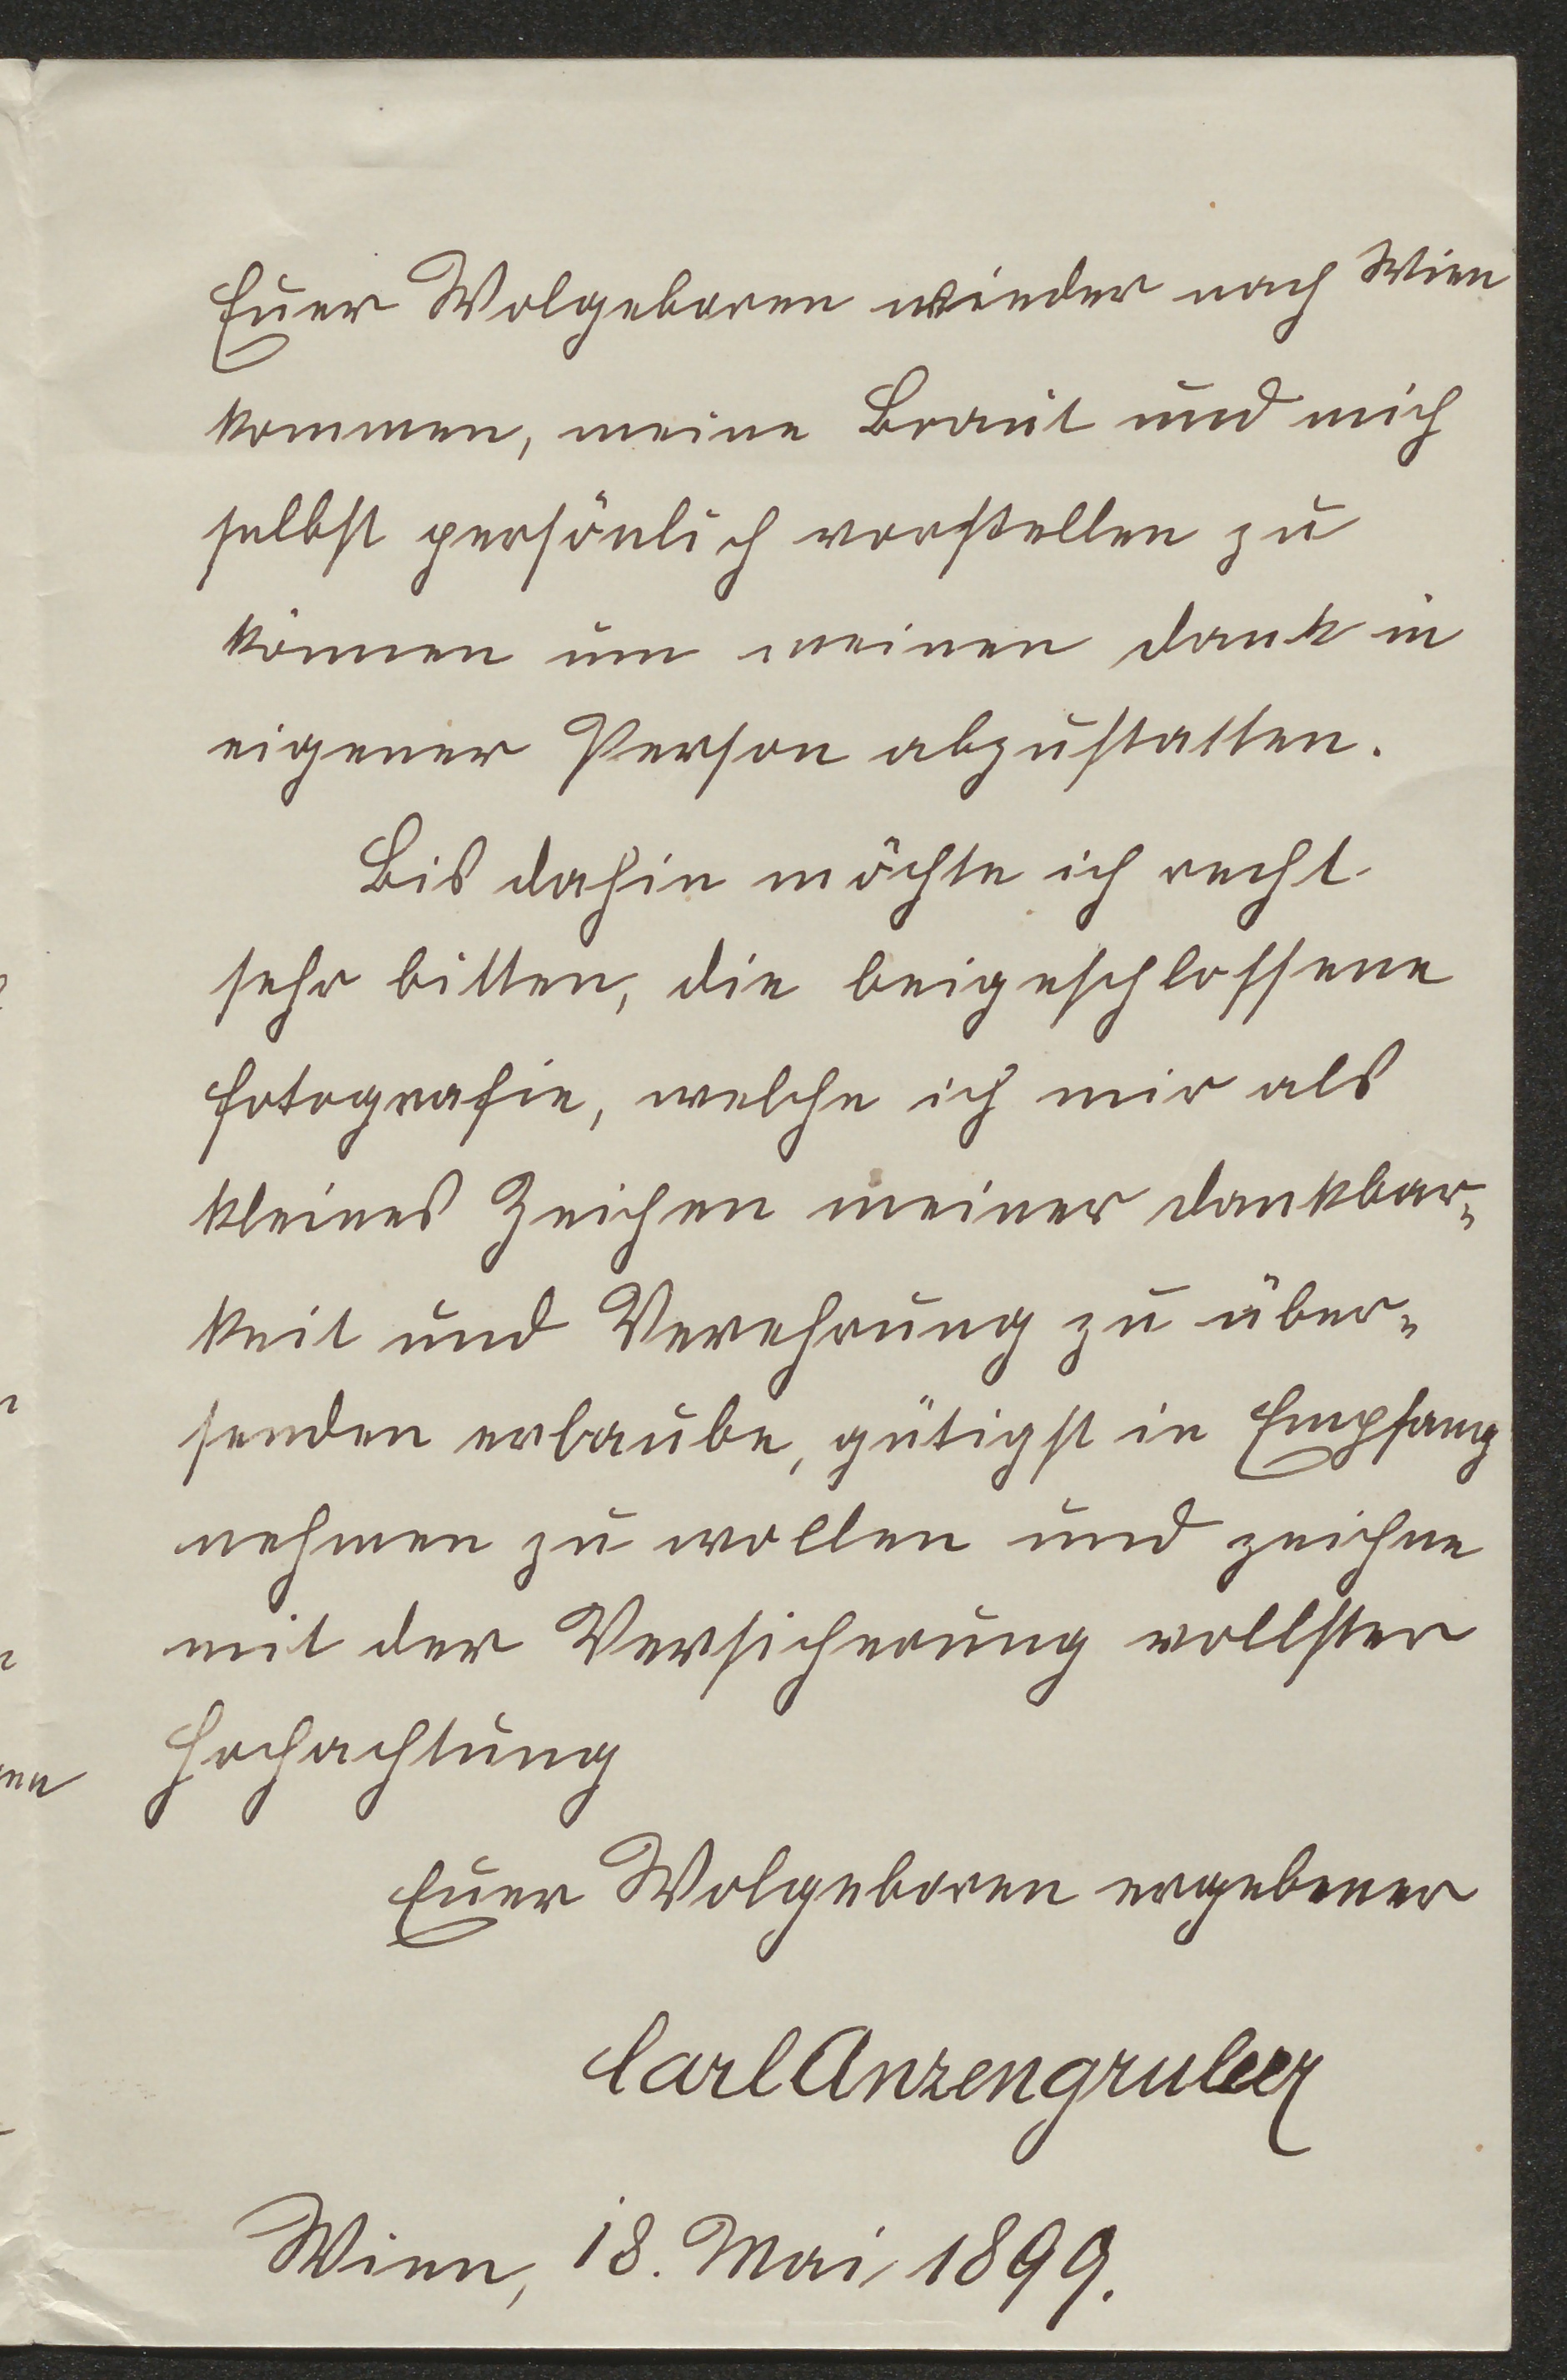 Euer Wolgeboren wieder nach Wien
kommen, meine Braut und mich
selbst persönlich vorstellen zu
können um meinen Dank in
eigener Person abzustatten.
Bis dahin möchte ich recht
sehr bitten, die beigeschlossene
Fotografie, welche ich mir als
kleines Zeichen meiner Dankbar=
keit und Verehrung zu über=
senden erlaube, gütigst in Empfang
nehmen zu wollen und zeichne
mit der Versicherung vollster
Hochachtung
Euer Wolgeboren ergebener
Carl Anzengruber
Wien, 18. Mai 1899.